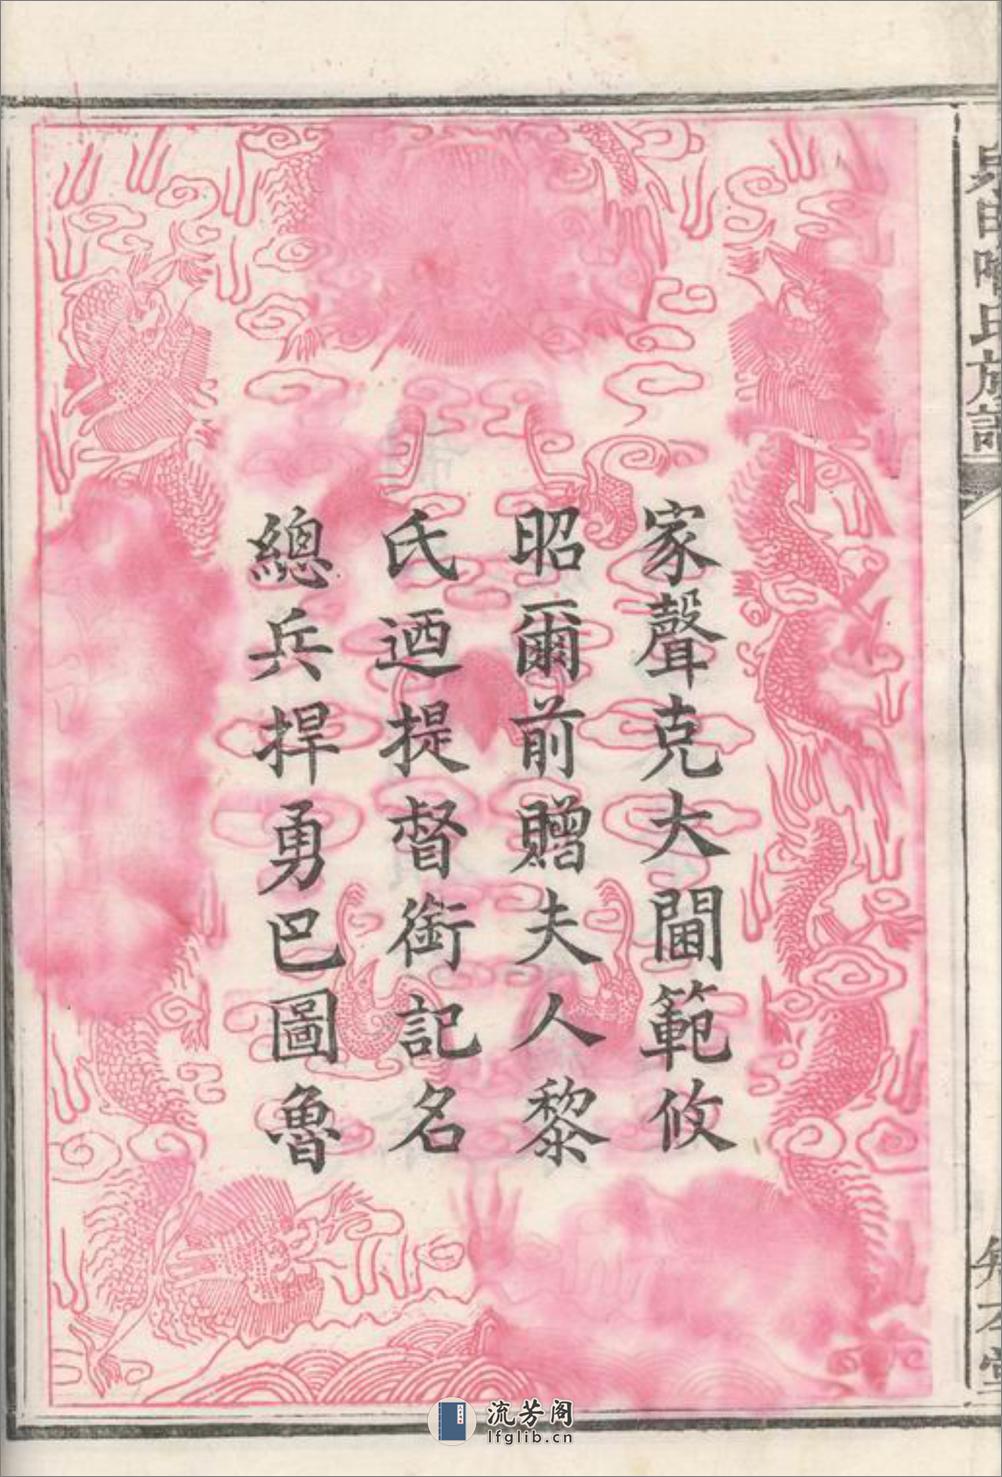 家聲克大閫範攸
昭爾前贈夫人黎
氏迺提督銜記名
總兵捍勇巴圖魯
氏族譜
流芳阁
lfglib.cn